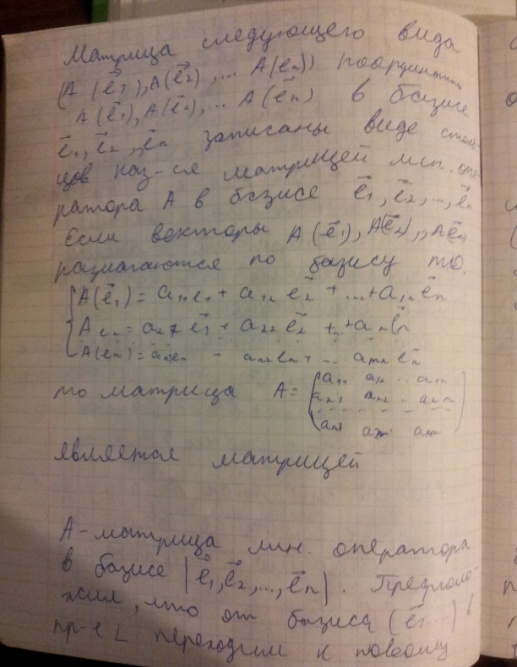 Матрица следующего вида
(A (e⃗₁), A(e⃗₂), ... A(e⃗n)) координаты
A(e⃗₁), A(e⃗₂), ... A(e⃗n) в базисе
e⃗₁, e⃗₂, ,, e⃗n записаны виде столб-
цов наз-ся матрицей лин. опе-
ратора A в базисе e⃗₁, e⃗₂, ..., e⃗n
Если векторы A(e⃗₁), A(e⃗₂), ,, A e⃗n
разлагаются по базису то.
A(e⃗₁) = a₁₁e₁ + a₁₂ e⃗₂ + ... + a₁n e⃗n
A e₂ = a₂₁ e⃗₁ + a₂₂ e⃗₂ + ... + a₂n e⃗n
A(en) = an₁e₁ - an₂e₂ + ... ann e⃗n
то матрица A = (a₁₁ a₁₂ ... a₁n
a₂₁ a₂₂ ... a₂n
an₁ an₂ ann)
является матрицей
A - матрица лин. оператора
в базисе |e⃗₁, e⃗₂, ..., e⃗n|. Предполо-
жим, что от базиса (e⃗₁ ...) в
пр-е L переходим к новому